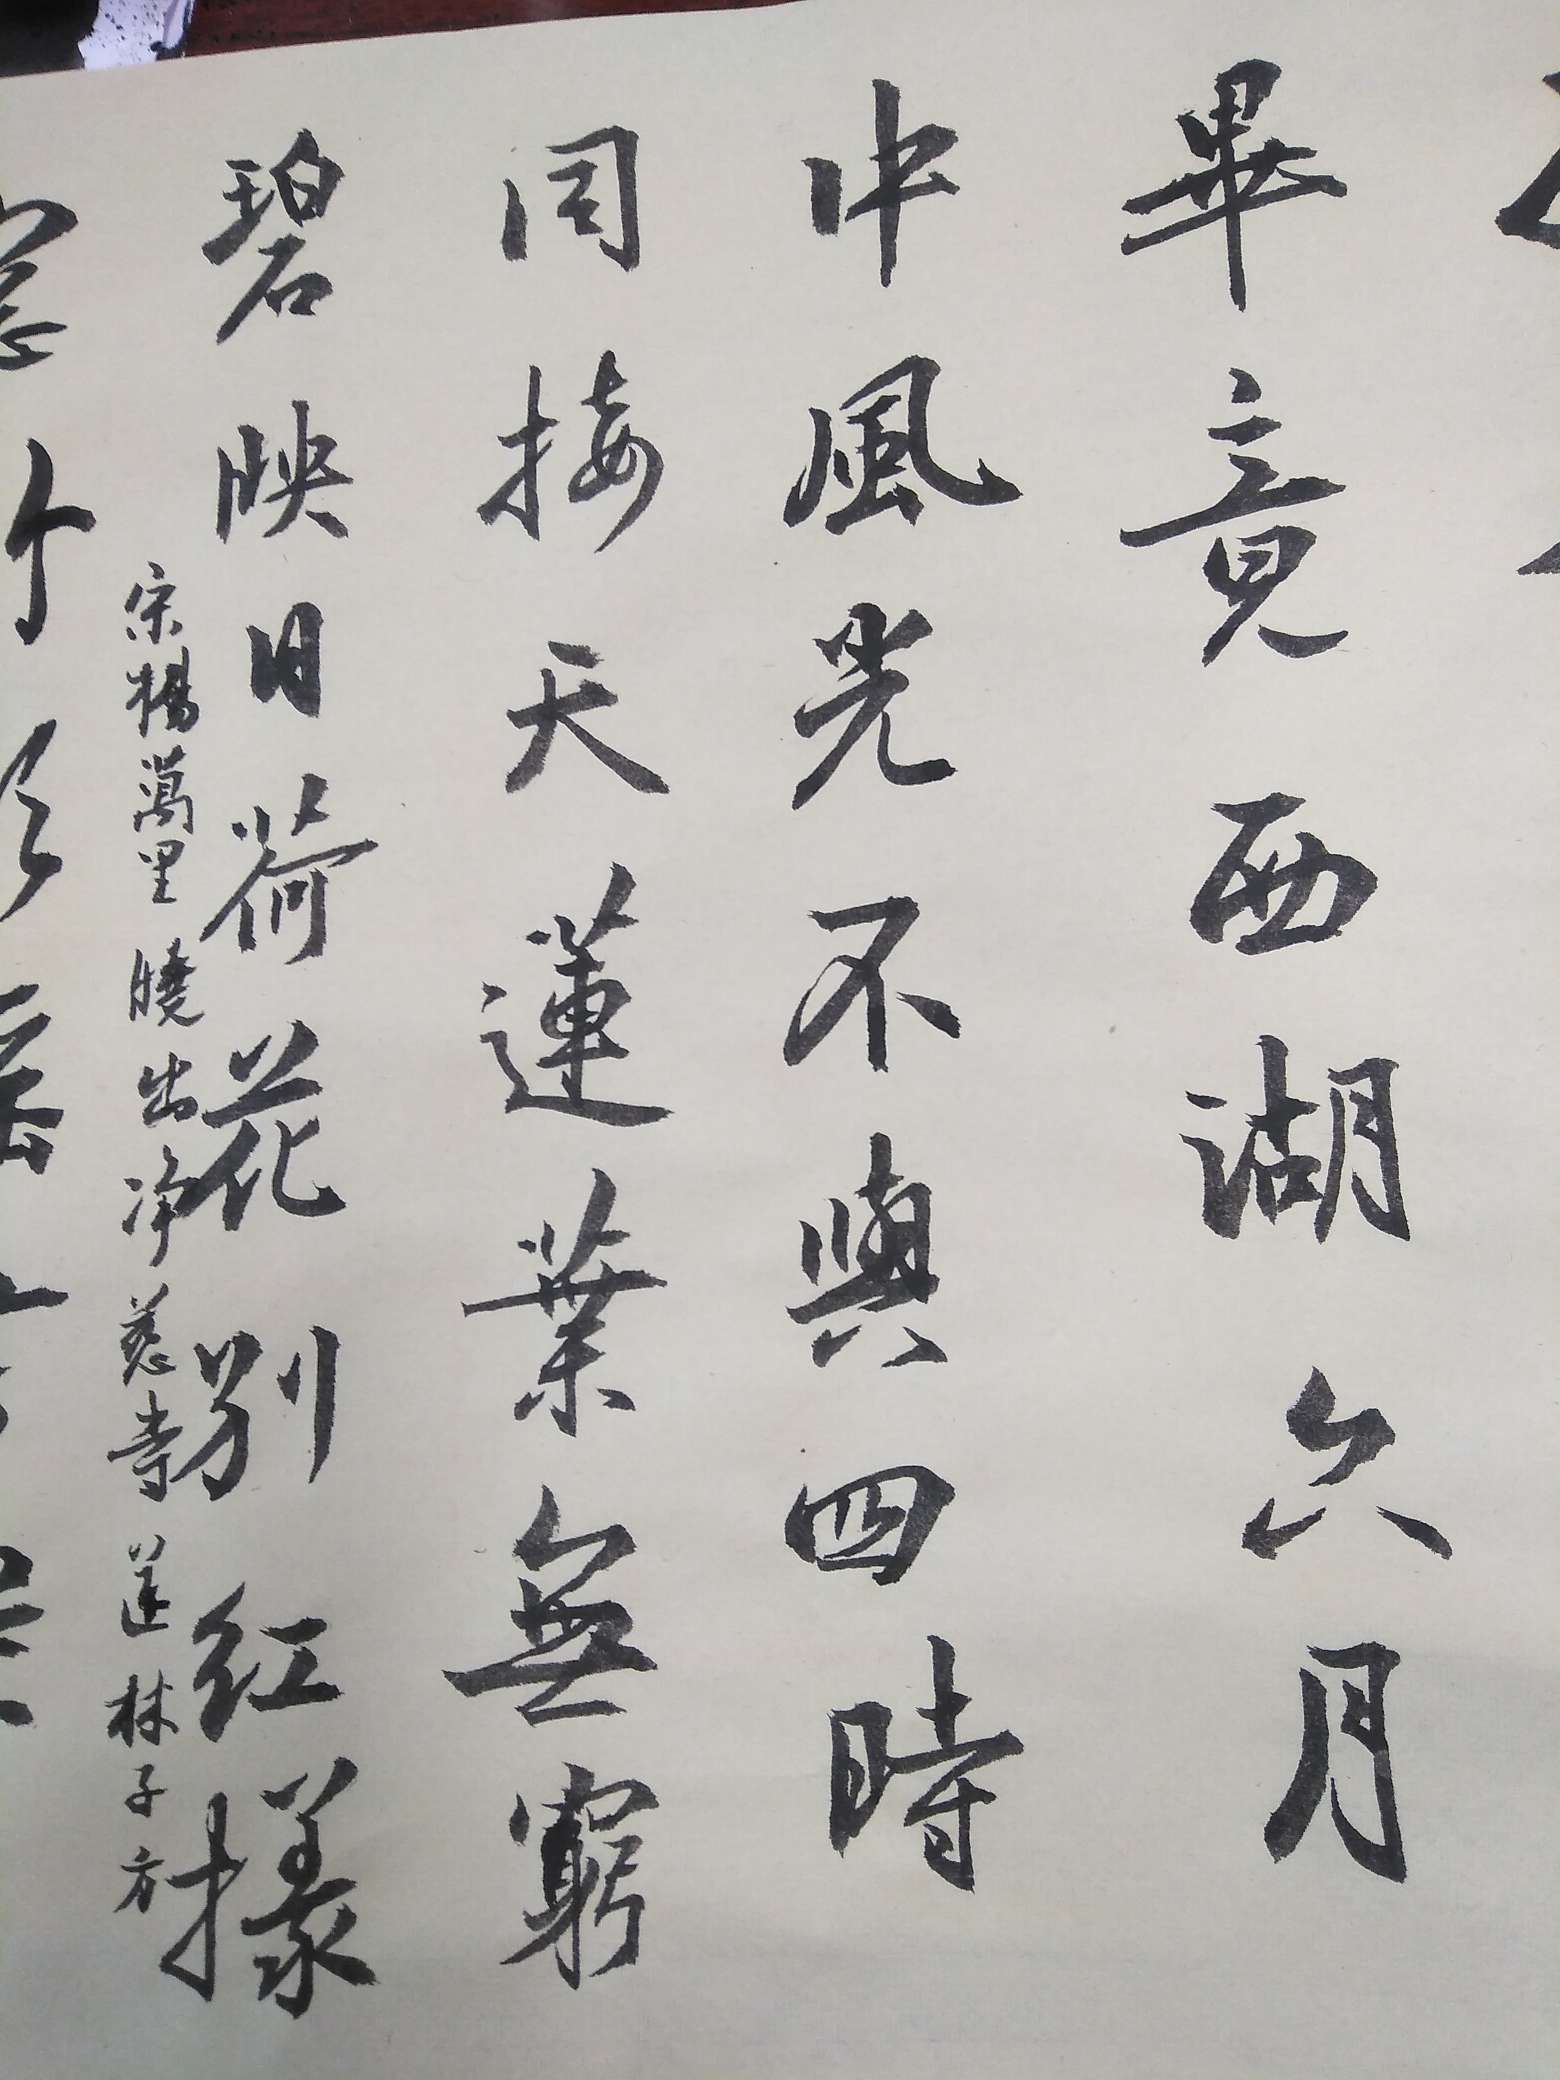 畢竟西湖六月
中風光不與四時
同接天蓮葉無窮
碧映日荷花別紅樣
宋楊萬里曉出净慈寺送林子方